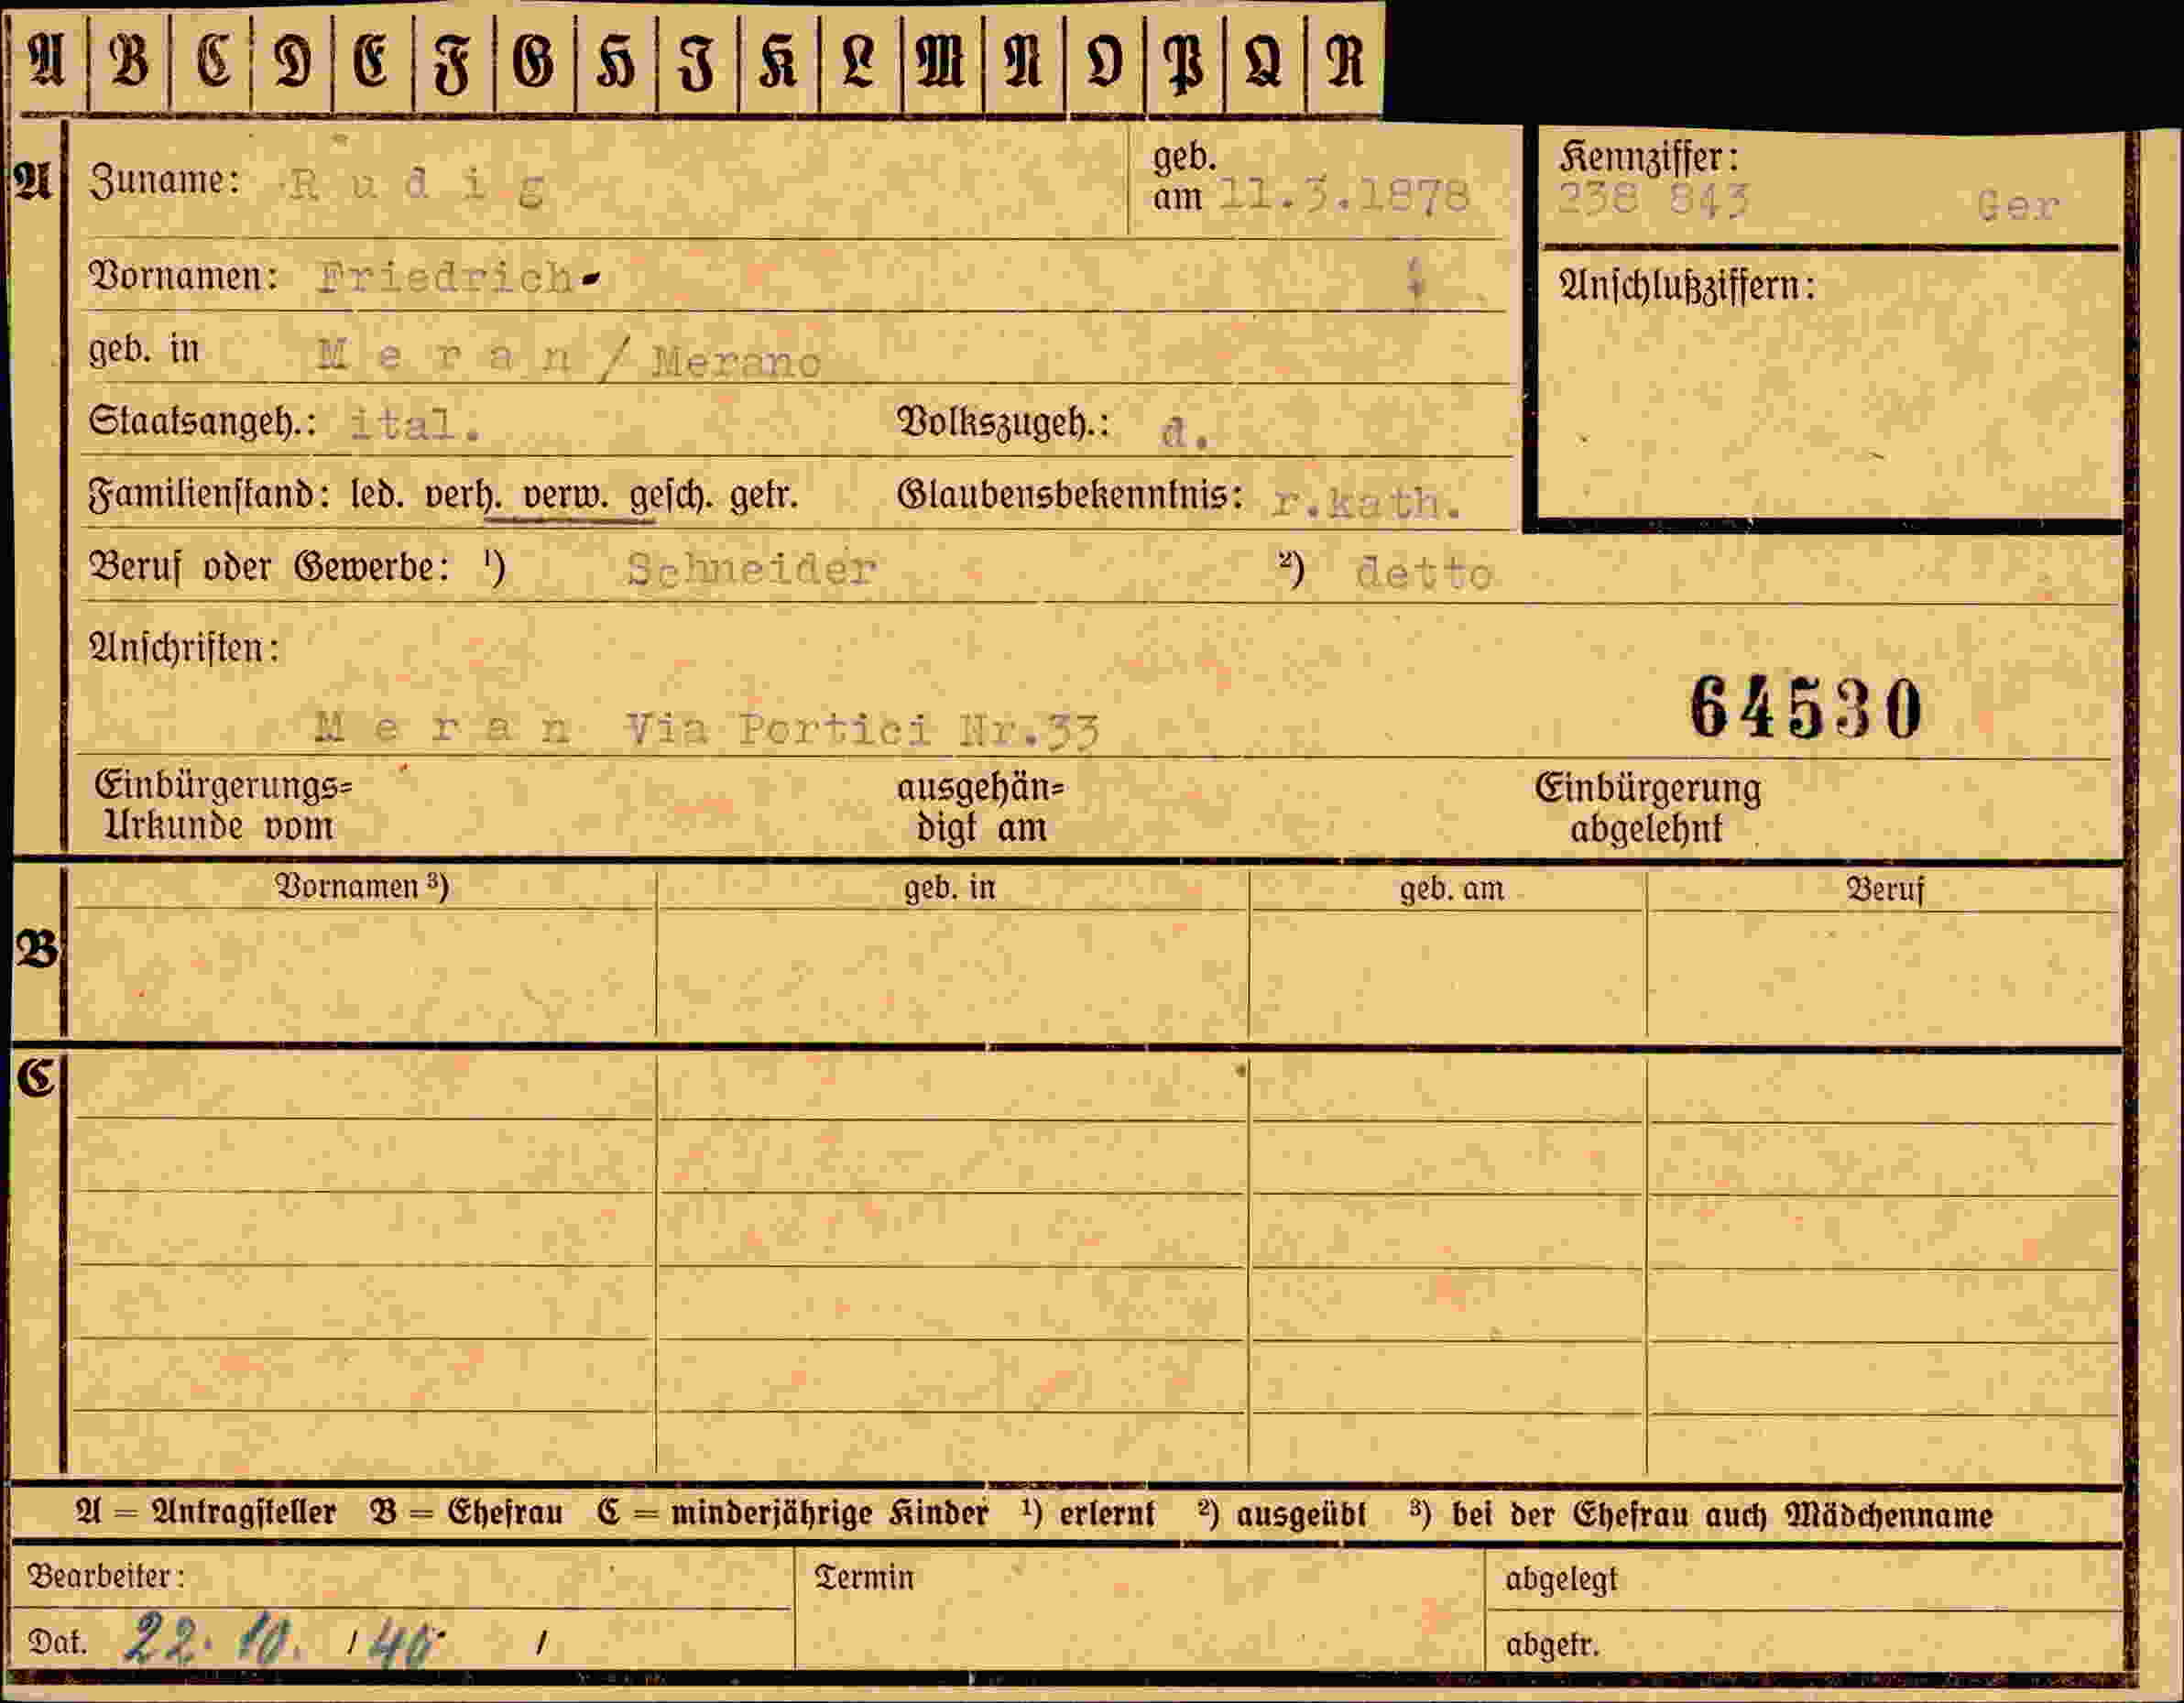 A B C D E F G H I K L M N O P Q R
A Zuname: Rudig geb. am 11.3.1878 Kennziffer: 238 843 Ger
Vornamen: Friedrich-
Anschlußziffern:
geb. in Meran / Merano
Staatsangeh.: ital. Volkszugeh.: d.
Familienstand: led. verh. verw. gesch. getr. Glaubensbekenntnis: r.kath.
Beruf oder Gewerbe: ¹) Schneider ²) detto
Anschriften:
64530
Meran Via Portici Nr.33
Einbürgerungs= ausgehän= Einbürgerung
Urkunde vom digt am abgelehnt
Vornamen ³) geb. in geb. am Beruf
B
C
A = Antragsteller B = Ehefrau C = minderjährige Kinder ¹) erlernt ²) ausgeübt ³) bei der Ehefrau auch Mädchenname
Bearbeiter: Termin abgelegt
Dat. 22. 10. / 40 / abgetr.